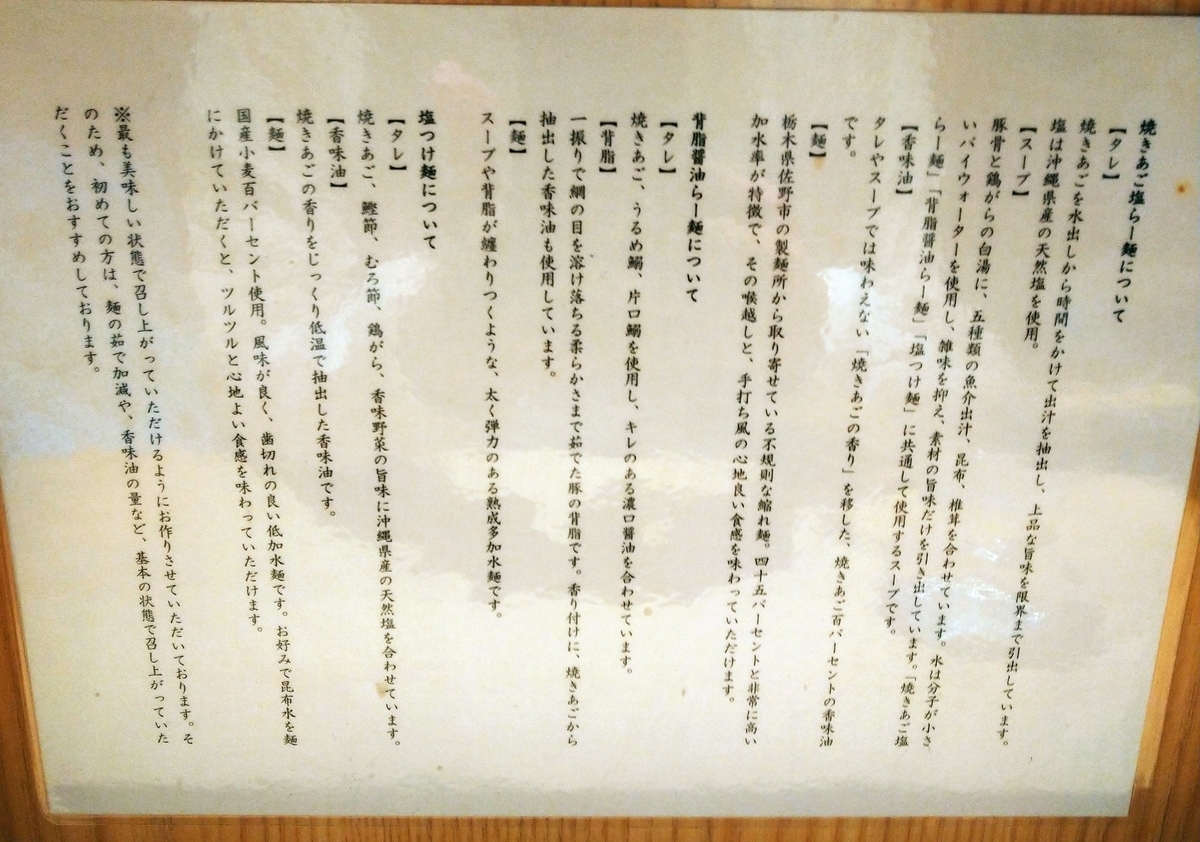 焼きあご塩らー麺について
【タレ】
焼きあごを水出しから時間をかけて出汁を抽出し、上品な旨味を限界まで引出しています。
塩は沖縄県産の天然塩を使用。
【スープ】
豚骨と鶏がらの白湯に、五種類の魚介出汁、昆布、椎茸を合わせています。水は分子が小さ
いパイウォーターを使用し、雑味を抑え、素材の旨味だけを引き出しています。「焼きあご塩
らー麺」「背脂醤油らー麺」「塩つけ麺」に共通して使用するスープです。
【香味油】
タレやスープでは味わえない「焼きあごの香り」を移した、焼きあご百パーセントの香味油
です。
【麺】
栃木県佐野市の製麺所から取り寄せている不規則な縮れ麺。四十五パーセントと非常に高い
加水率が特徴で、その喉越しと、手打ち風の心地良い食感を味わっていただけます。
背脂醤油らー麺について
【タレ】
焼きあご、うるめ鰯、片口鰯を使用し、キレのある濃口醤油を合わせています。
【背脂】
一振りで網の目を溶け落ちる柔らかさまで茹でた豚の背脂です。香り付けに、焼きあごから
抽出した香味油も使用しています。
【麺】
スープや背脂が纏わりつくような、太く弾力のある熟成多加水麺です。
塩つけ麺について
【タレ】
焼きあご、鰹節、むろ節、鶏がら、香味野菜の旨味に沖縄県産の天然塩を合わせています。
【香味油】
焼きあごの香りをじっくり低温で抽出した香味油です。
【麺】
国産小麦百パーセント使用。風味が良く、歯切れの良い低加水麺です。お好みで昆布水を麺
にかけていただくと、ツルツルと心地よい食感を味わっていただけます。
※最も美味しい状態で召し上がっていただけるようにお作りさせていただいております。そ
のため、初めての方は、麺の茹で加減や、香味油の量など、基本の状態で召し上がっていた
だくことをおすすめしております。